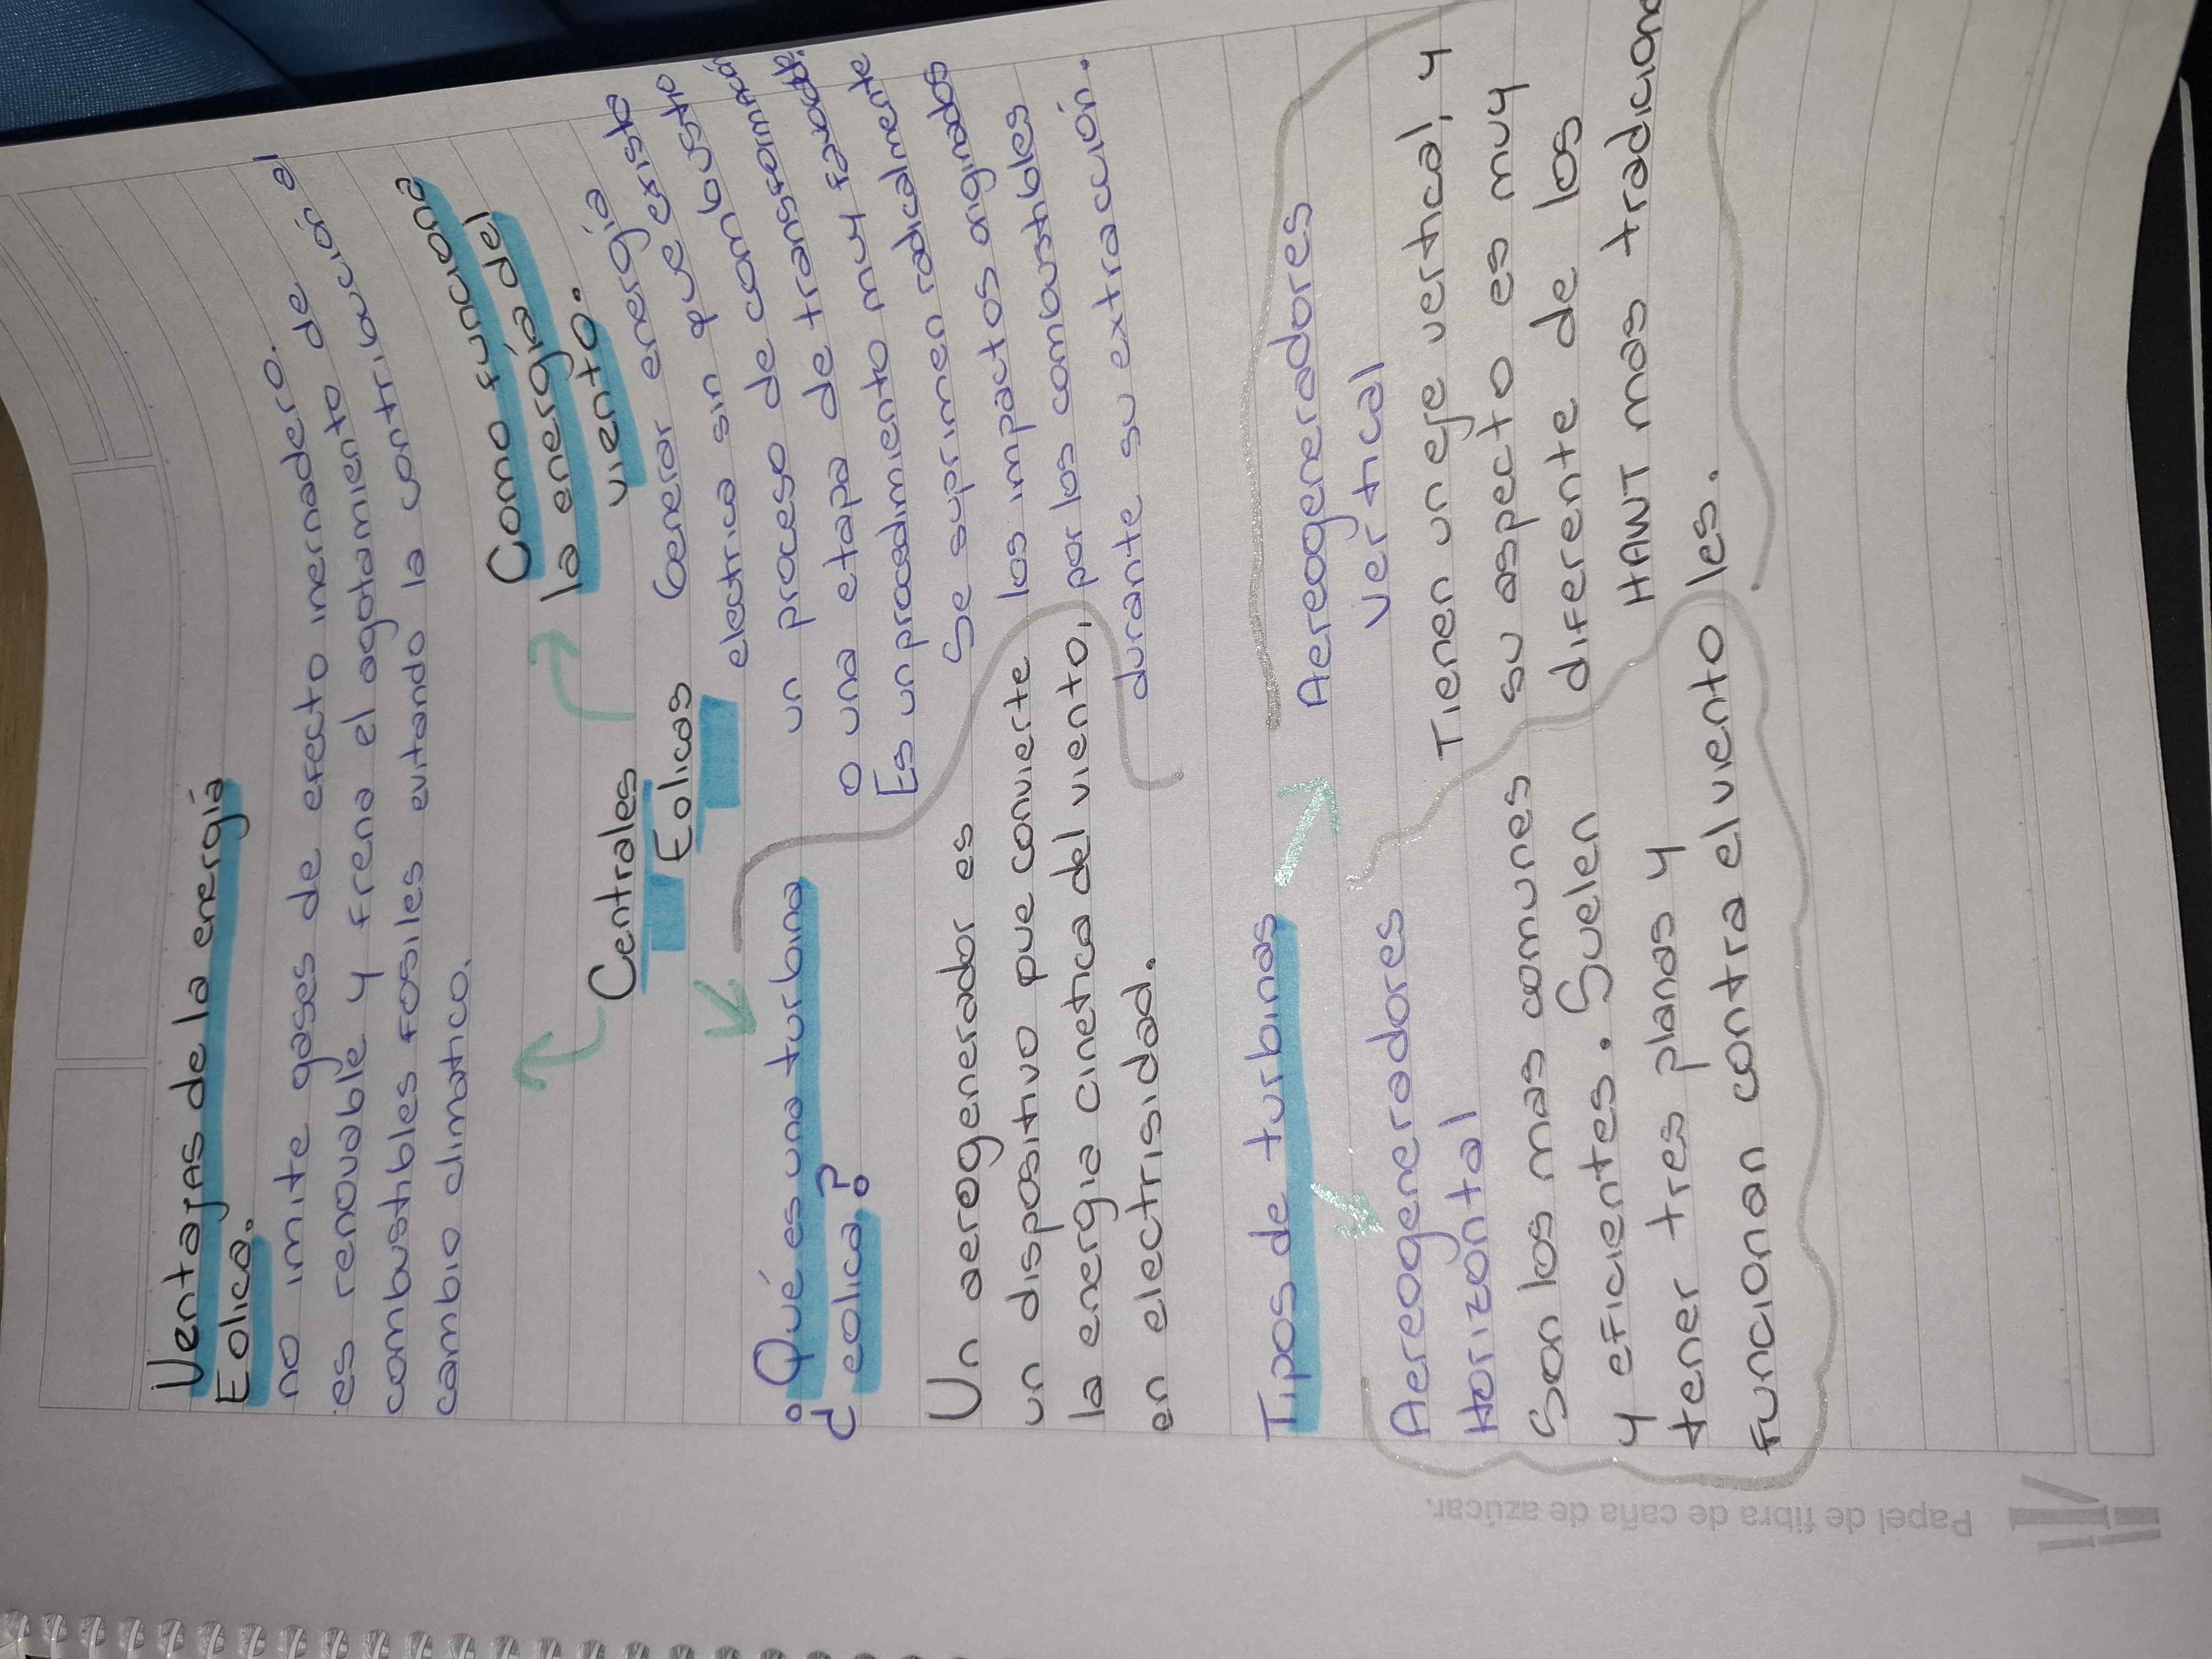 Ventajas de la energía
Eolica.
no imite gases de efecto inernadero.
es renovable y frena el agotamiento de
combustibles fosiles evitando la contribución al
cambio climatico.
Centrales
Eolicas
Como funciona
la energía del
viento.
Generar energía
electrica sin que exista
un proceso de combustio
o una etapa de transformación
Es un procedimiento muy favorable
Se suprimen radicalmente
los impactos originados
por los combustibles
durante su extracción.
¿Qué es una turbina
eolica?
Un aerogenerador es
un dispositivo que convierte
la energia cinetica del viento,
en electrisidad.
Tipos de turbinas
Aereogeneradores
Horizontal
Son los mas comunes
y eficientes. Suelen
tener tres planas y
funcionan contra el viento
Aereogeneradores
vertical
Tienen un eje vertical, y
su aspecto es muy
diferente de los
HAWT mas tradiciona
les.
Papel de fibra de caña de azúcar.